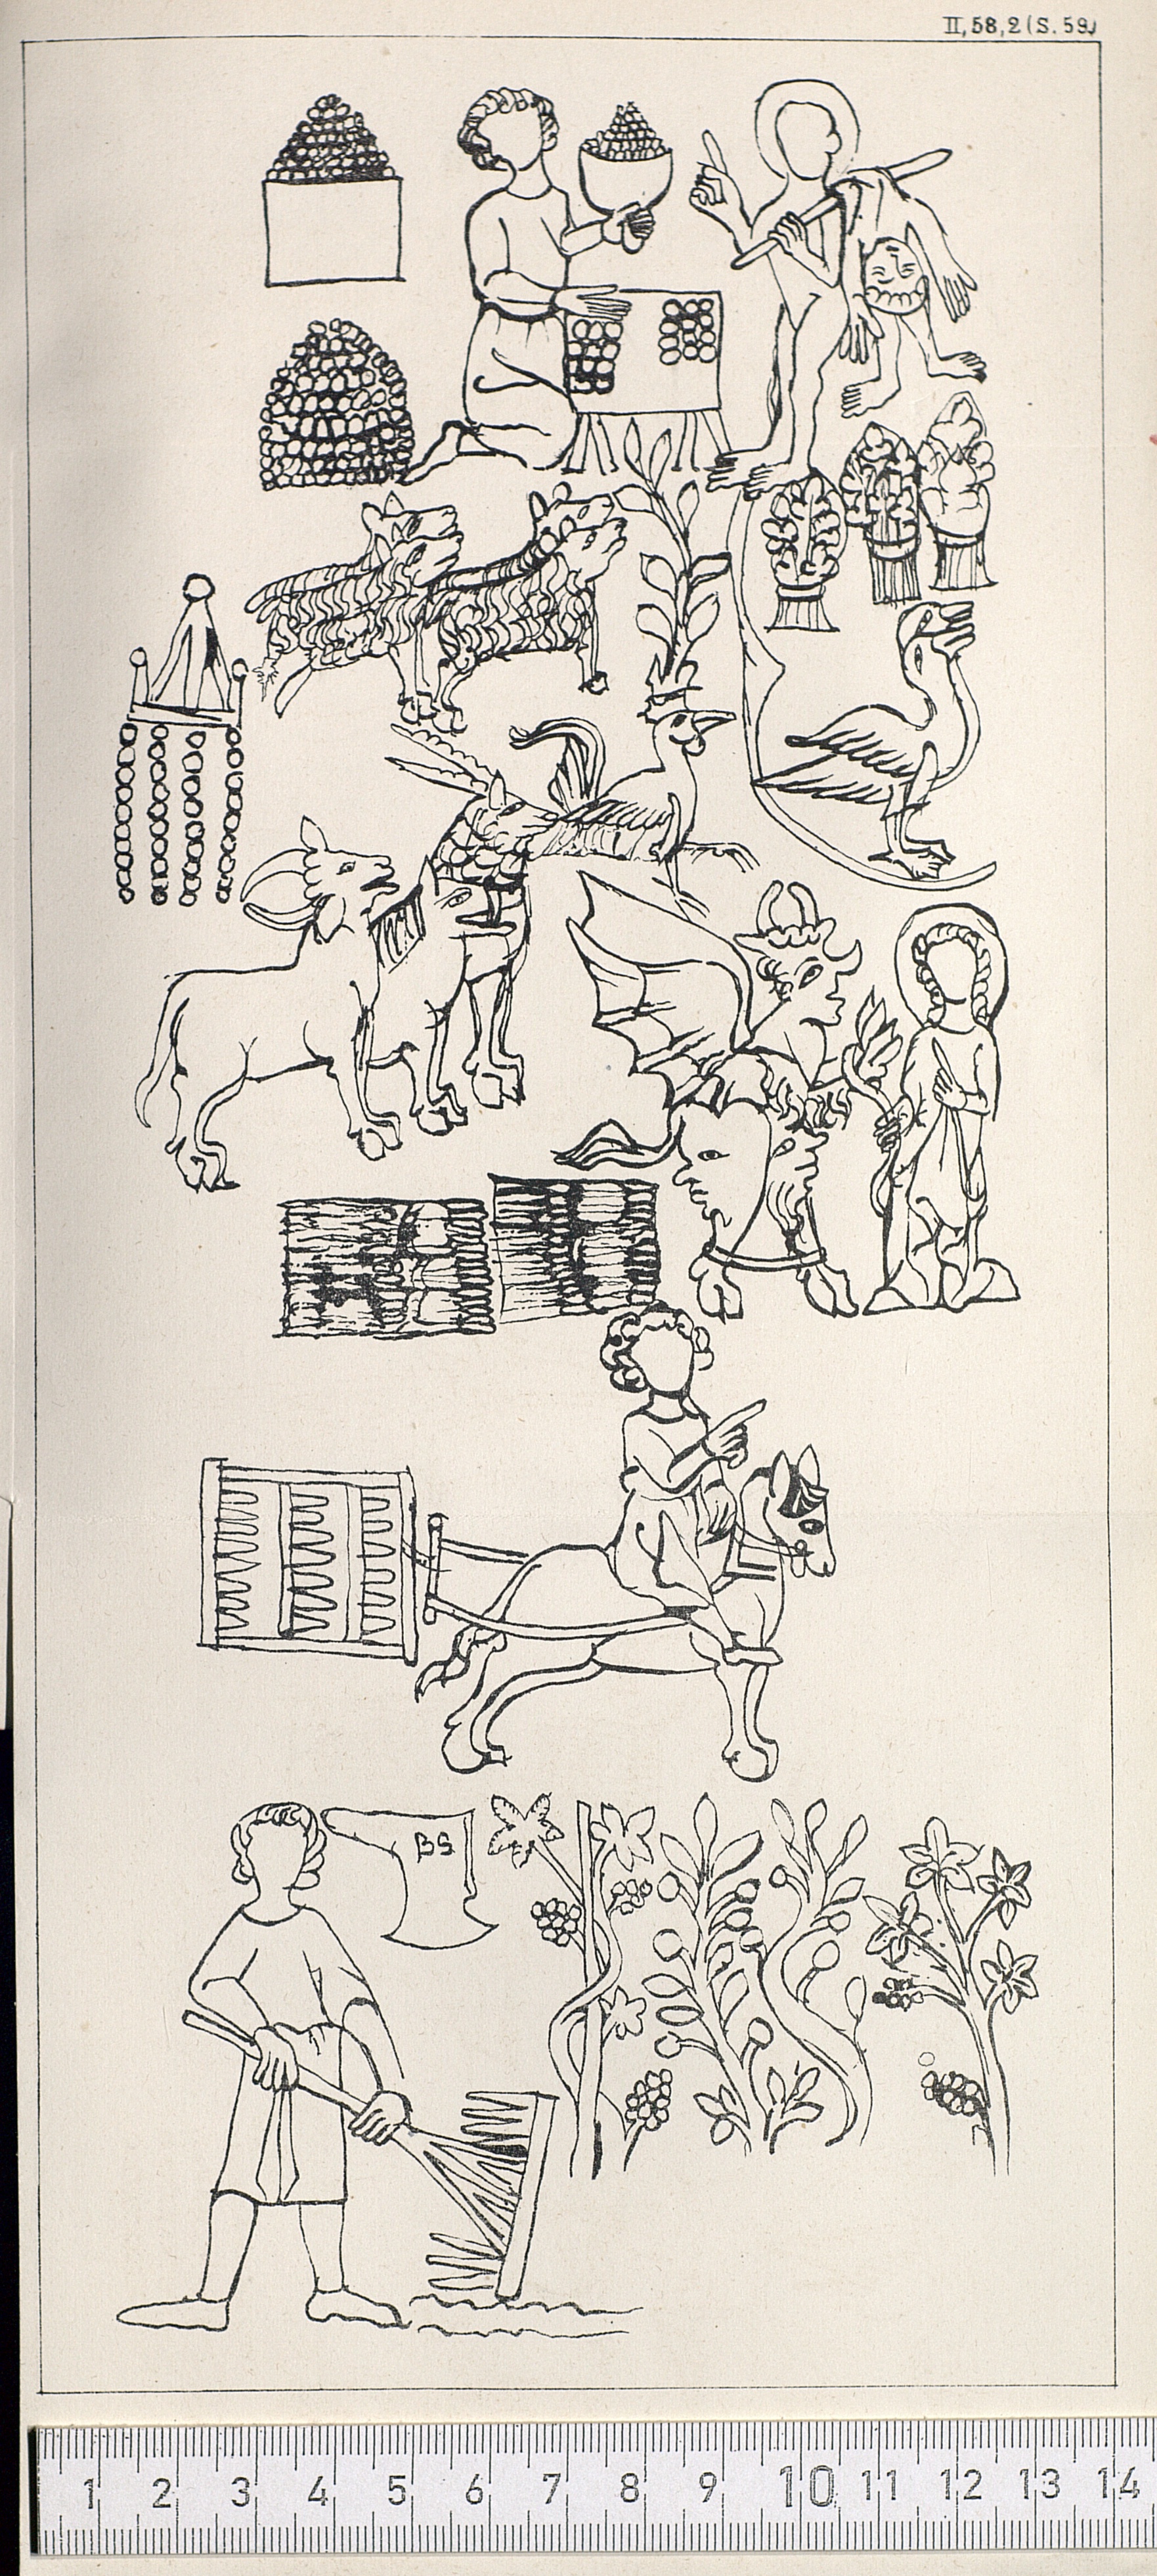 II,58,2 (S. 59)
BS
1 2 3 4 5 6 7 8 9 10 11 12 13 14